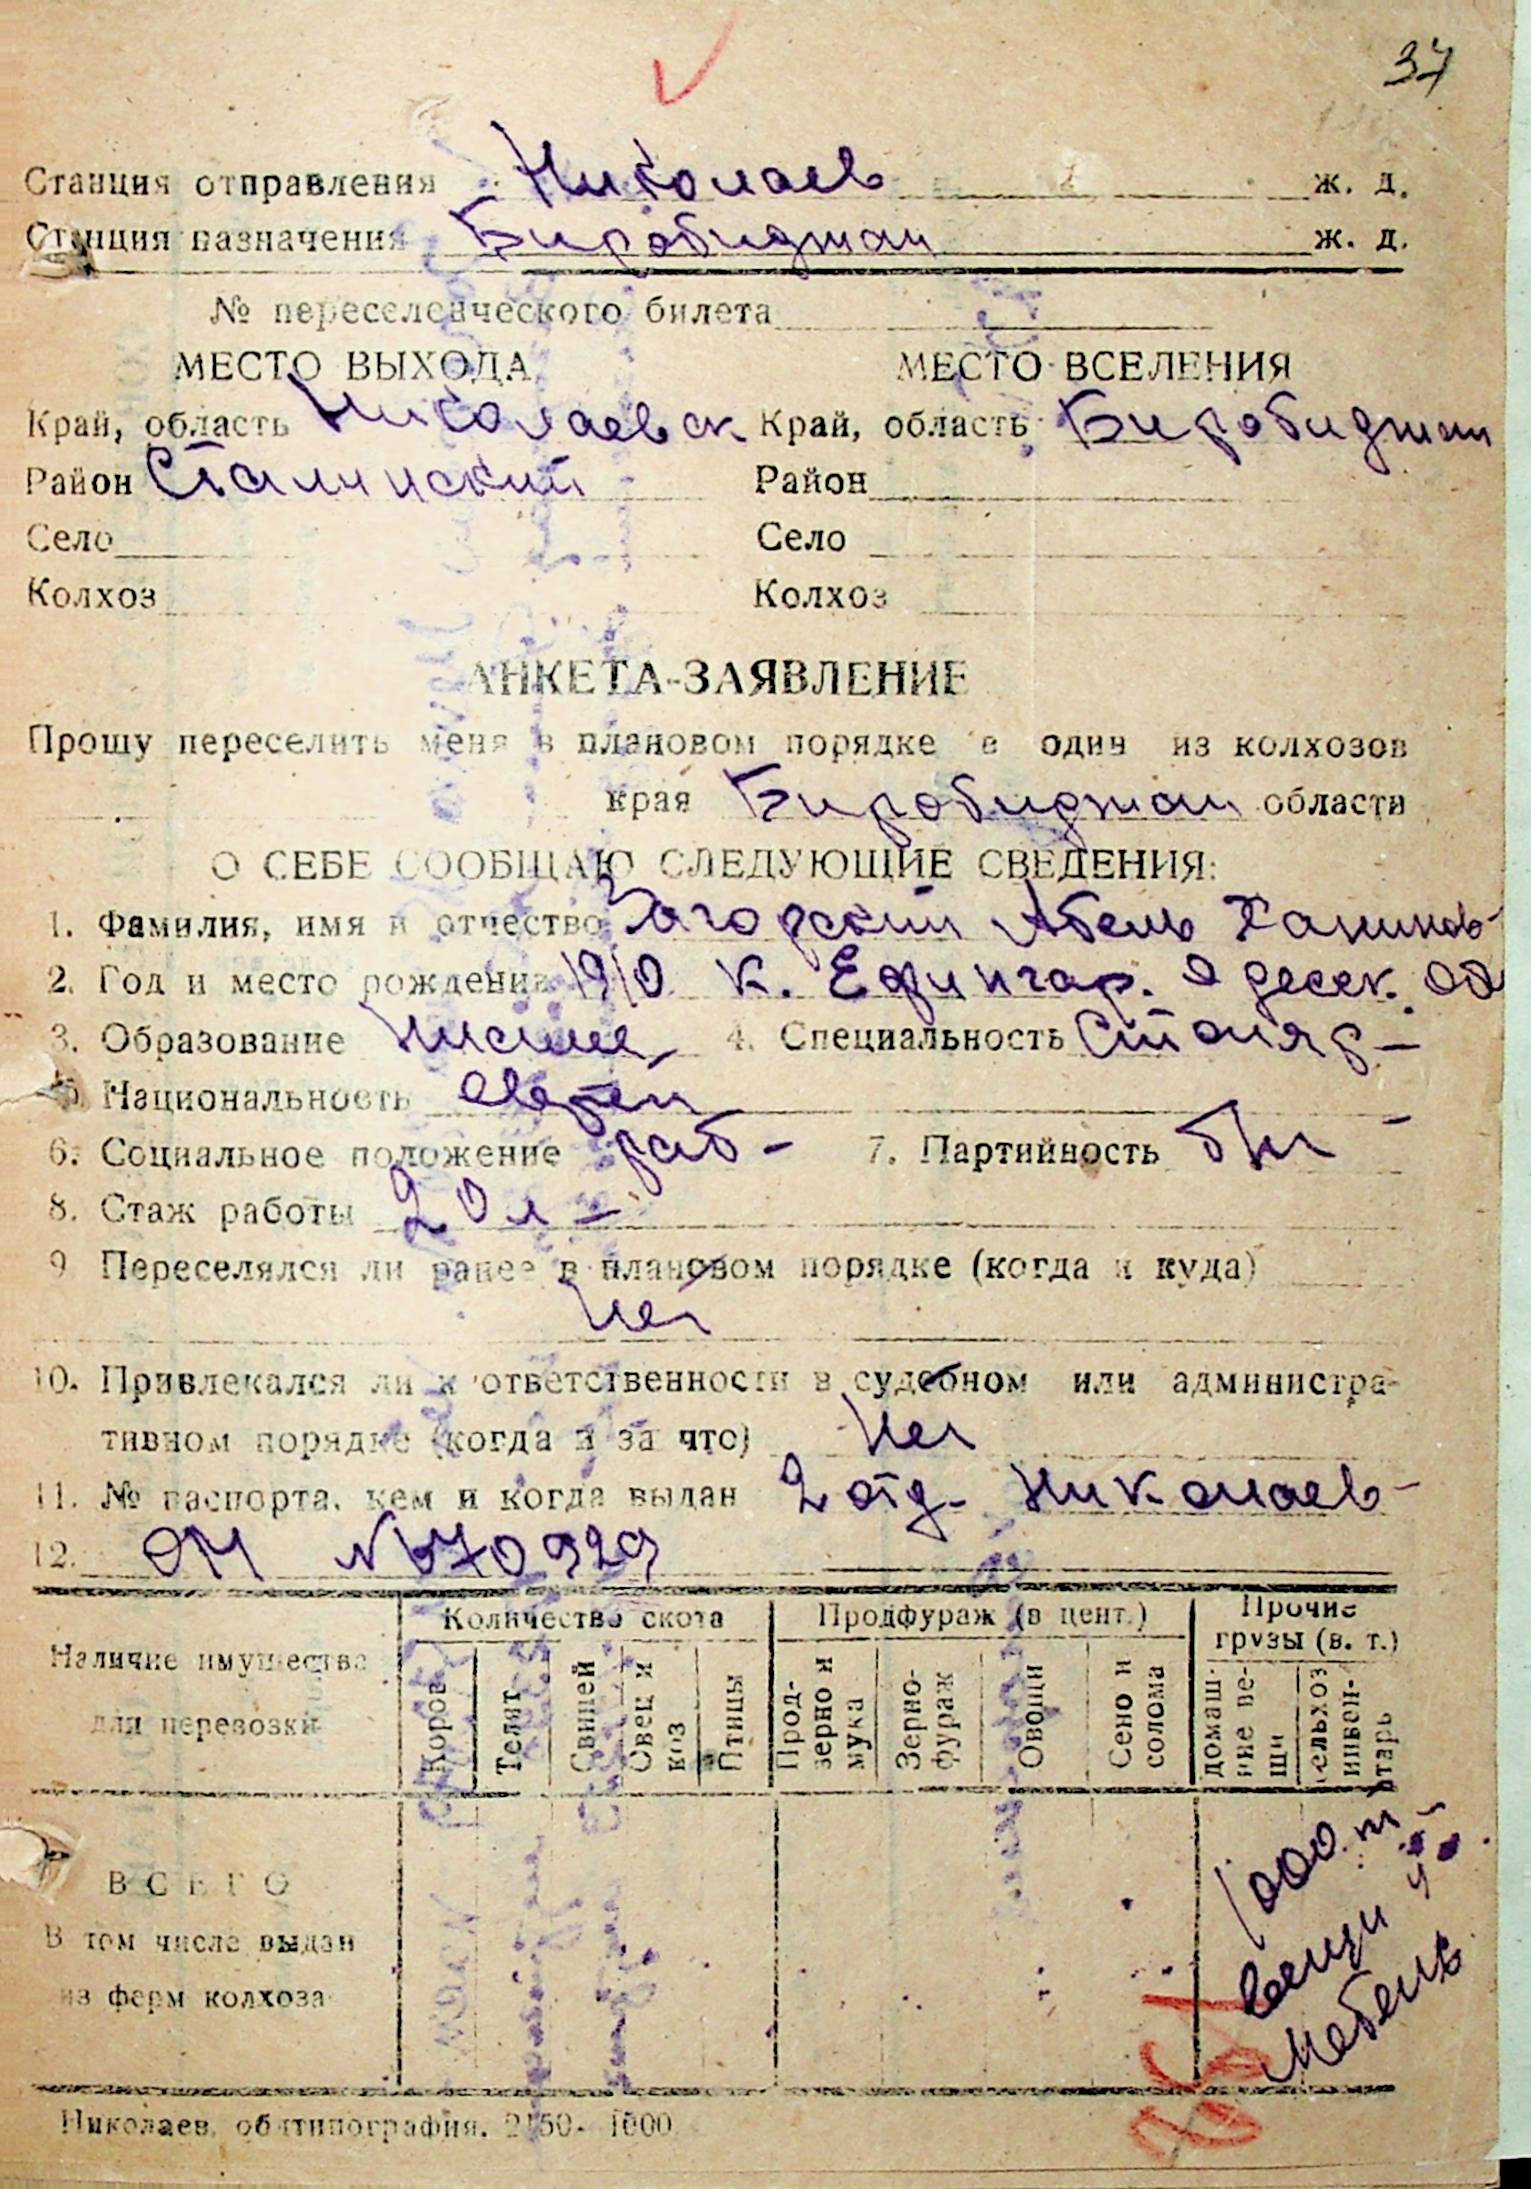 37
Станция отправления Николаев ж. д.
Станция назначения Биробиджан ж. д.
№ переселенческого билета
МЕСТО ВЫХОДА МЕСТО ВСЕЛЕНИЯ
Край, область Николаевск Край, область Биробиджан
Район Сталинский Район
Село Село
Колхоз Колхоз
АНКЕТА-ЗАЯВЛЕНИЕ
Прошу переселить меня в плановом порядке в один из колхозов
края Биробиджан области
О СЕБЕ СООБЩАЮ СЛЕДУЮЩИЕ СВЕДЕНИЯ:
1. Фамилия, имя и отчество Загорский Абель Хаимов-
2. Год и место рождения 1910 к. Ефингар. Одесск. об
3. Образование низшее 4. Специальность Столяр-
5. Национальность еврей
6. Социальное положение раб- 7. Партийность б/п -
8. Стаж работы 20 л -
9 Переселялся ли ранее в плановом порядке (когда и куда)
Нет
10. Привлекался ли к ответственности в судебном или администра-
тивном порядке (когда и за что) Нет
11. № паспорта, кем и когда выдан 2 отд- Николаев-
12. ОМ № 670929
Наличие имущества для перевозки
Количество скота Продфураж (в цент.) Прочие грузы (в. т.)
Коров Телят Свиней Овец и коз Птицы Прод-зерно и мука Зерно-фураж Овощи Сено и солома домаш-ние ве-щи сельхоз инвен-тарь
ВСЕГО
В том числе выдан
из ферм колхоза
1000 т
вещи и
мебель
Николаев, облтипография. 2150- 1000